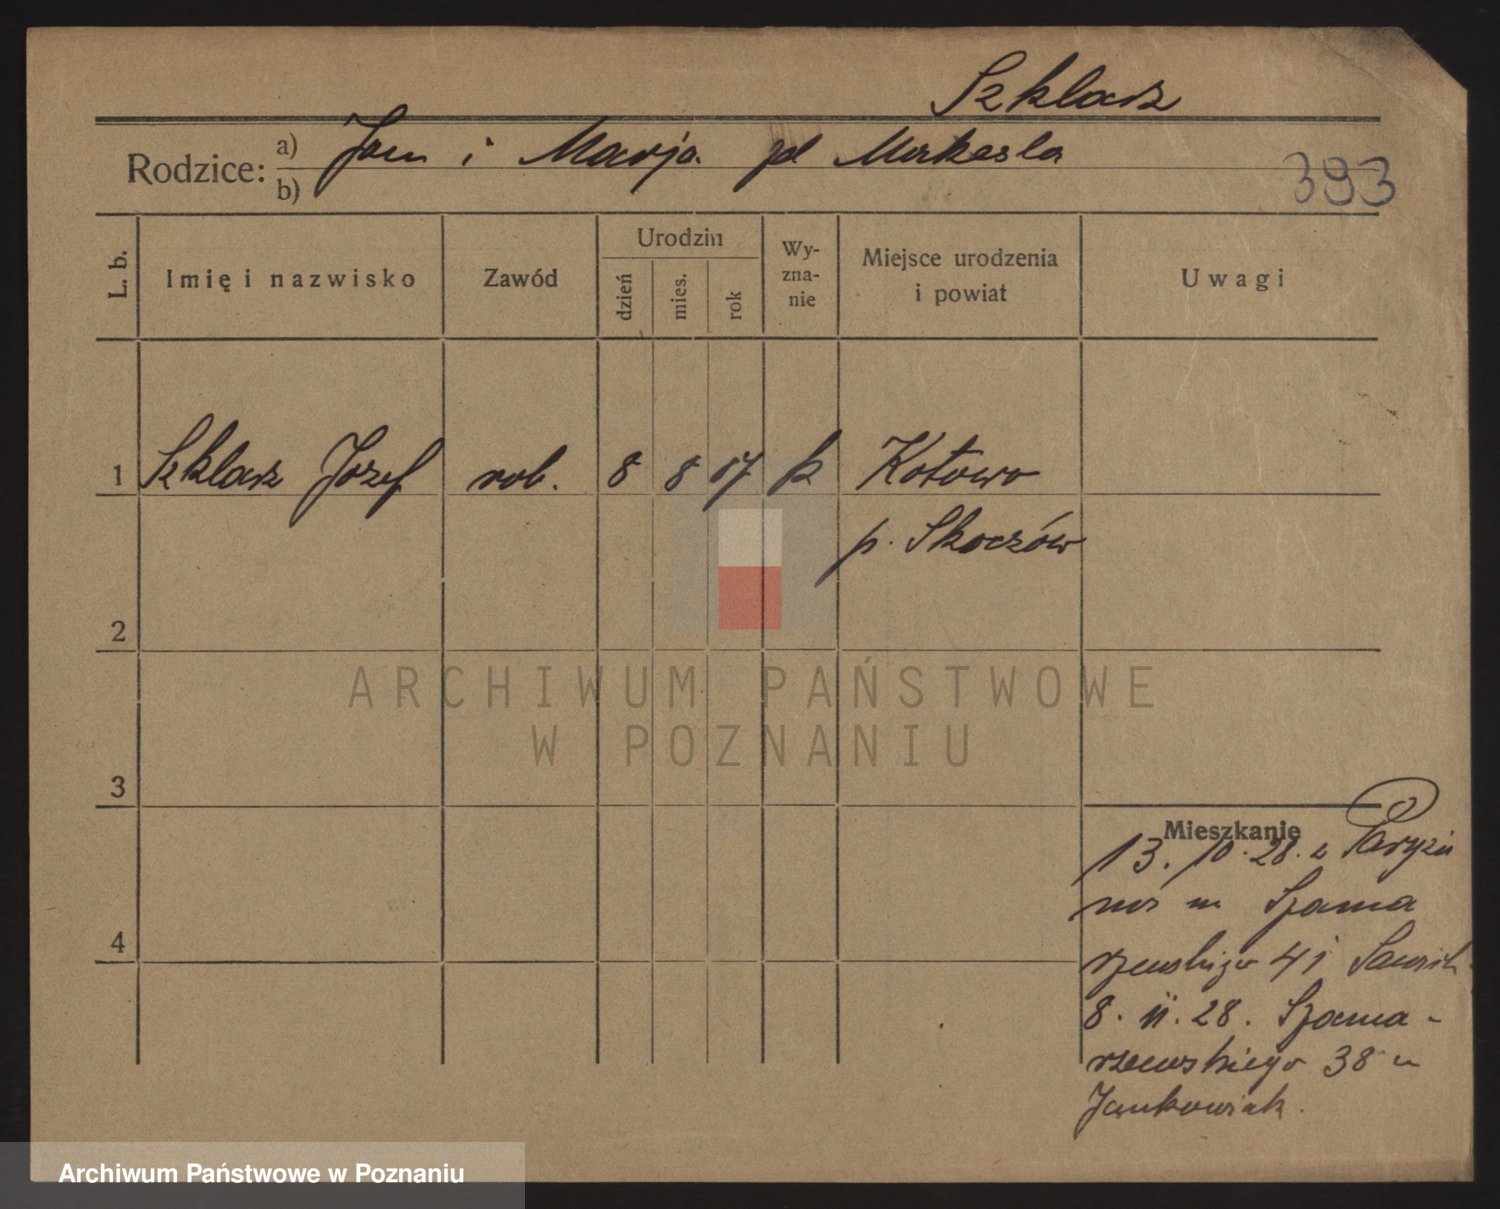 Szklarz
Rodzice: a) Jan i Marja zd
b)
393
L. b.
Imię i nazwisko
Zawód
Urodzin
dzień
mies.
rok
Wy-
zna-
nie
Miejsce urodzenia
i powiat
Uwagi
1 Szklarz Józef rob. 8 8 07 k Kotowo
p. Skoczów
2
ARCHIWUM PAŃSTWOWE
W POZNANIU
3
Mieszkanie
13. 10. 28. z Paryża
Szama
rzewskiego 41
8. 11. 28. Szama-
rzewskiego 38 u
Jankowiak.
4
Archiwum Państwowe w Poznaniu